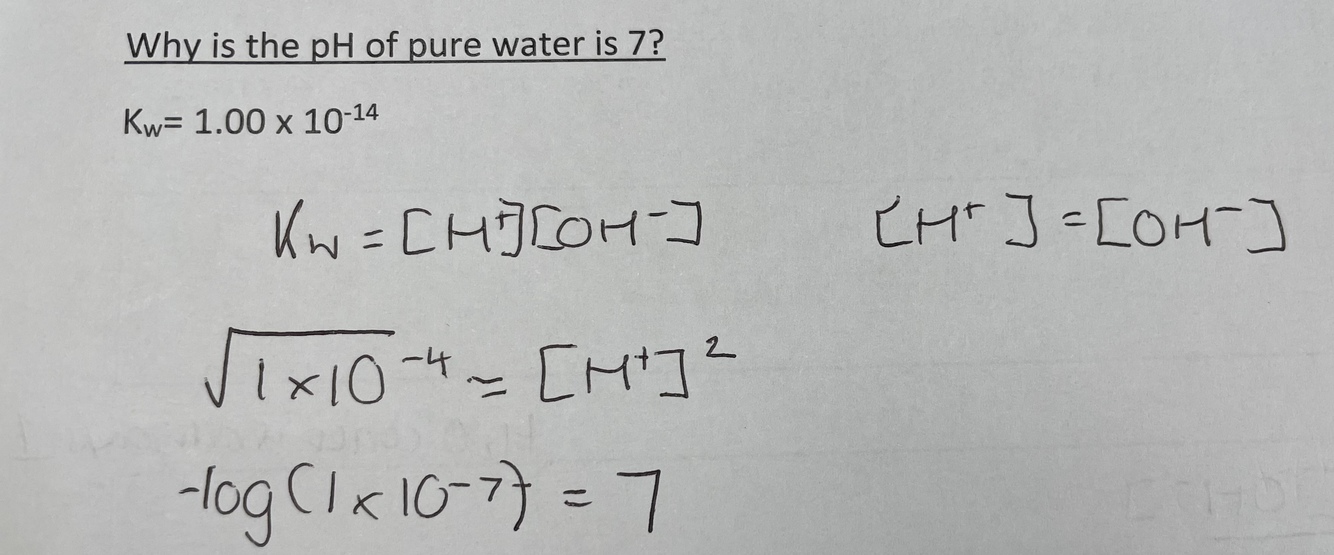 Why is the pH of pure water is 7?
Kw= 1.00 x 10⁻¹⁴
Kw = [H⁺][OH⁻] [H⁺] = [OH⁻]
√1×10⁻⁴ = [H⁺]²
-log(1×10⁻⁷) = 7